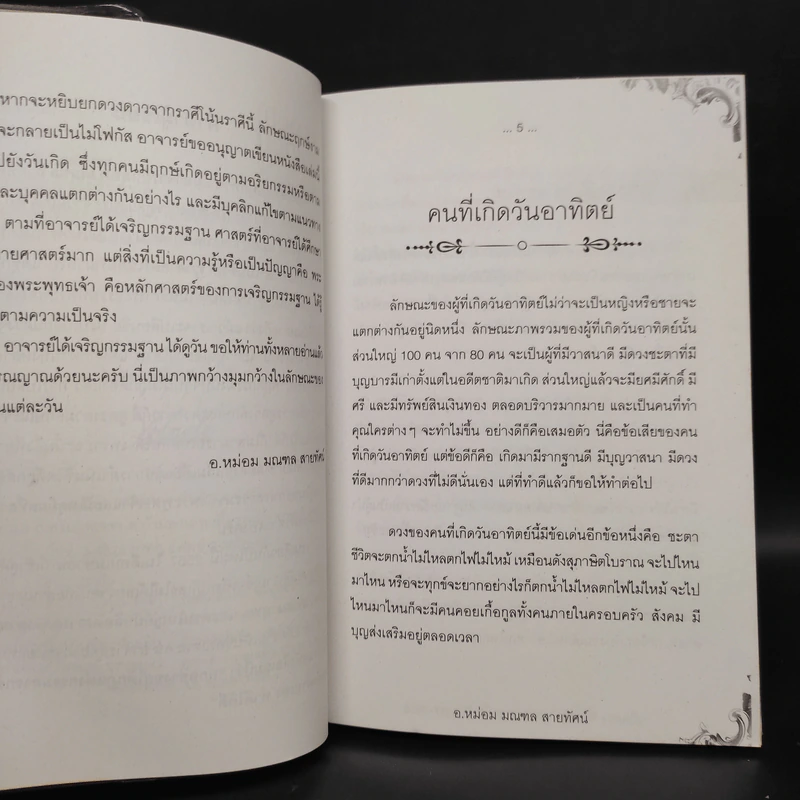 หากจะหยิบยกดวงดาวจากราศีโน้นราศีนี้ ลักษณะฤกษ์งาม
จะกลายเป็นไม่โฟกัส อาจารย์ขออนุญาตเขียนหนังสือเล่มนี้
ปยังวันเกิด ซึ่งทุกคนมีฤกษ์เกิดอยู่ตามอริยกรรมหรือตาม
ละบุคคลแตกต่างกันอย่างไร และมีบุคลิกแก้ไขตามแนวทาง
ตามที่อาจารย์ได้เจริญกรรมฐาน ศาสตร์ที่อาจารย์ได้ศึกษา
ายศาสตร์มาก แต่สิ่งที่เป็นความรู้หรือเป็นปัญญาคือ พระ
องพระพุทธเจ้า คือหลักศาสตร์ของการเจริญกรรมฐาน ได้รู้
ตามความเป็นจริง
อาจารย์ได้เจริญกรรมฐาน ได้ดูวัน ขอให้ท่านทั้งหลายอ่านแล้ว
รณญาณด้วยนะครับ นี่เป็นภาพกว้างมุมกว้างในลักษณะของ
นแต่ละวัน
อ.หม่อม มณฑล สายทัศน์
... 5 ...
คนที่เกิดวันอาทิตย์
ลักษณะของผู้ที่เกิดวันอาทิตย์ไม่ว่าจะเป็นหญิงหรือชายจะ
แตกต่างกันอยู่นิดหนึ่ง ลักษณะภาพรวมของผู้ที่เกิดวันอาทิตย์นั้น
ส่วนใหญ่ 100 คน จาก 80 คน จะเป็นผู้ที่มีวาสนาดี มีดวงชะตาที่มี
บุญบารมีเก่าตั้งแต่ในอดีตชาติมาเกิด ส่วนใหญ่แล้วจะมียศมีศักดิ์ มี
ศรี และมีทรัพย์สินเงินทอง ตลอดบริวารมากมาย และเป็นคนที่ทำ
คุณใครต่างๆ จะทำไม่ขึ้น อย่างดีก็คือเสมอตัว นี่คือข้อเสียของคน
ที่เกิดวันอาทิตย์ แต่ข้อดีก็คือ เกิดมามีรากฐานดี มีบุญวาสนา มีดวง
ที่ดีมากกว่าดวงที่ไม่ดีนั่นเอง แต่ที่ทำดีแล้วก็ขอให้ทำต่อไป
ดวงของคนที่เกิดวันอาทิตย์นี้มีข้อเด่นอีกข้อหนึ่งคือ ชะตา
ชีวิตจะตกน้ำไม่ไหลตกไฟไม่ไหม้ เหมือนดังสุภาษิตโบราณ จะไปไหน
มาไหน หรือจะทุกข์จะยากอย่างไรก็ตกน้ำไม่ไหลตกไฟไม่ไหม้ จะไป
ไหนมาไหนก็จะมีคนคอยเกื้อกูลทั้งคนภายในครอบครัว สังคม มี
บุญส่งเสริมอยู่ตลอดเวลา
อ.หม่อม มณฑล สายทัศน์